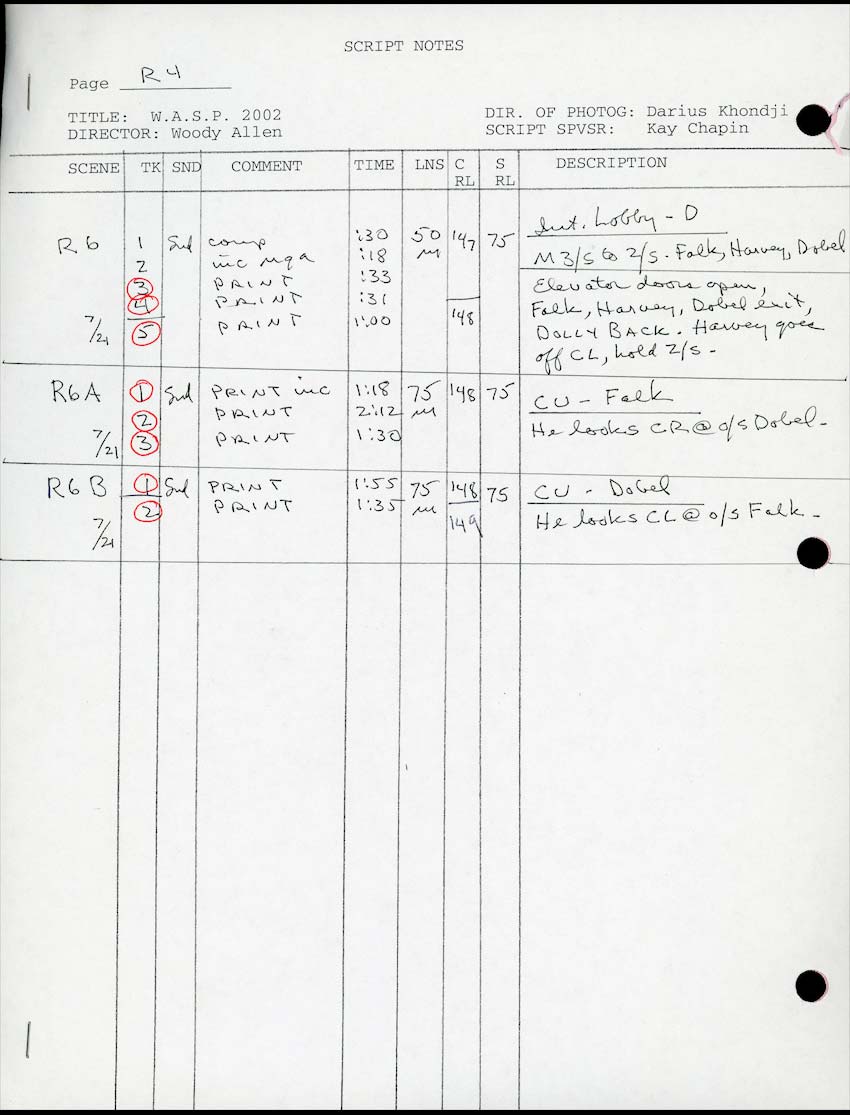 SCRIPT NOTES
Page R4
TITLE: W.A.S.P. 2002
DIR. OF PHOTOG: Darius Khondji
DIRECTOR: Woody Allen
SCRIPT SPVSR: Kay Chapin
SCENE TK SND COMMENT TIME LNS C RL S RL DESCRIPTION
Int. Lobby - D
R6 1 Snd comp :30 50 m 147 75
M 3/S to 2/S. Falk, Harvey, Dobel
2 inc :18
3 PRINT :33
Elevator doors open,
4 PRINT :31
Falk, Harvey, Dobel exit,
7/21 5 PRINT 1:00 148
DOLLY BACK. Harvey goes
off CL, hold 2/S -
R6A 1 Snd PRINT inc 1:18 75 m 148 75
CU - Falk
2 PRINT 2:12
7/21 3 PRINT 1:30
He looks CR @ o/s Dobel -
R6B 1 Snd PRINT 1:55 75 m 148 75
CU - Dobel
2 PRINT 1:35 149
He looks CL @ o/s Falk -
7/21